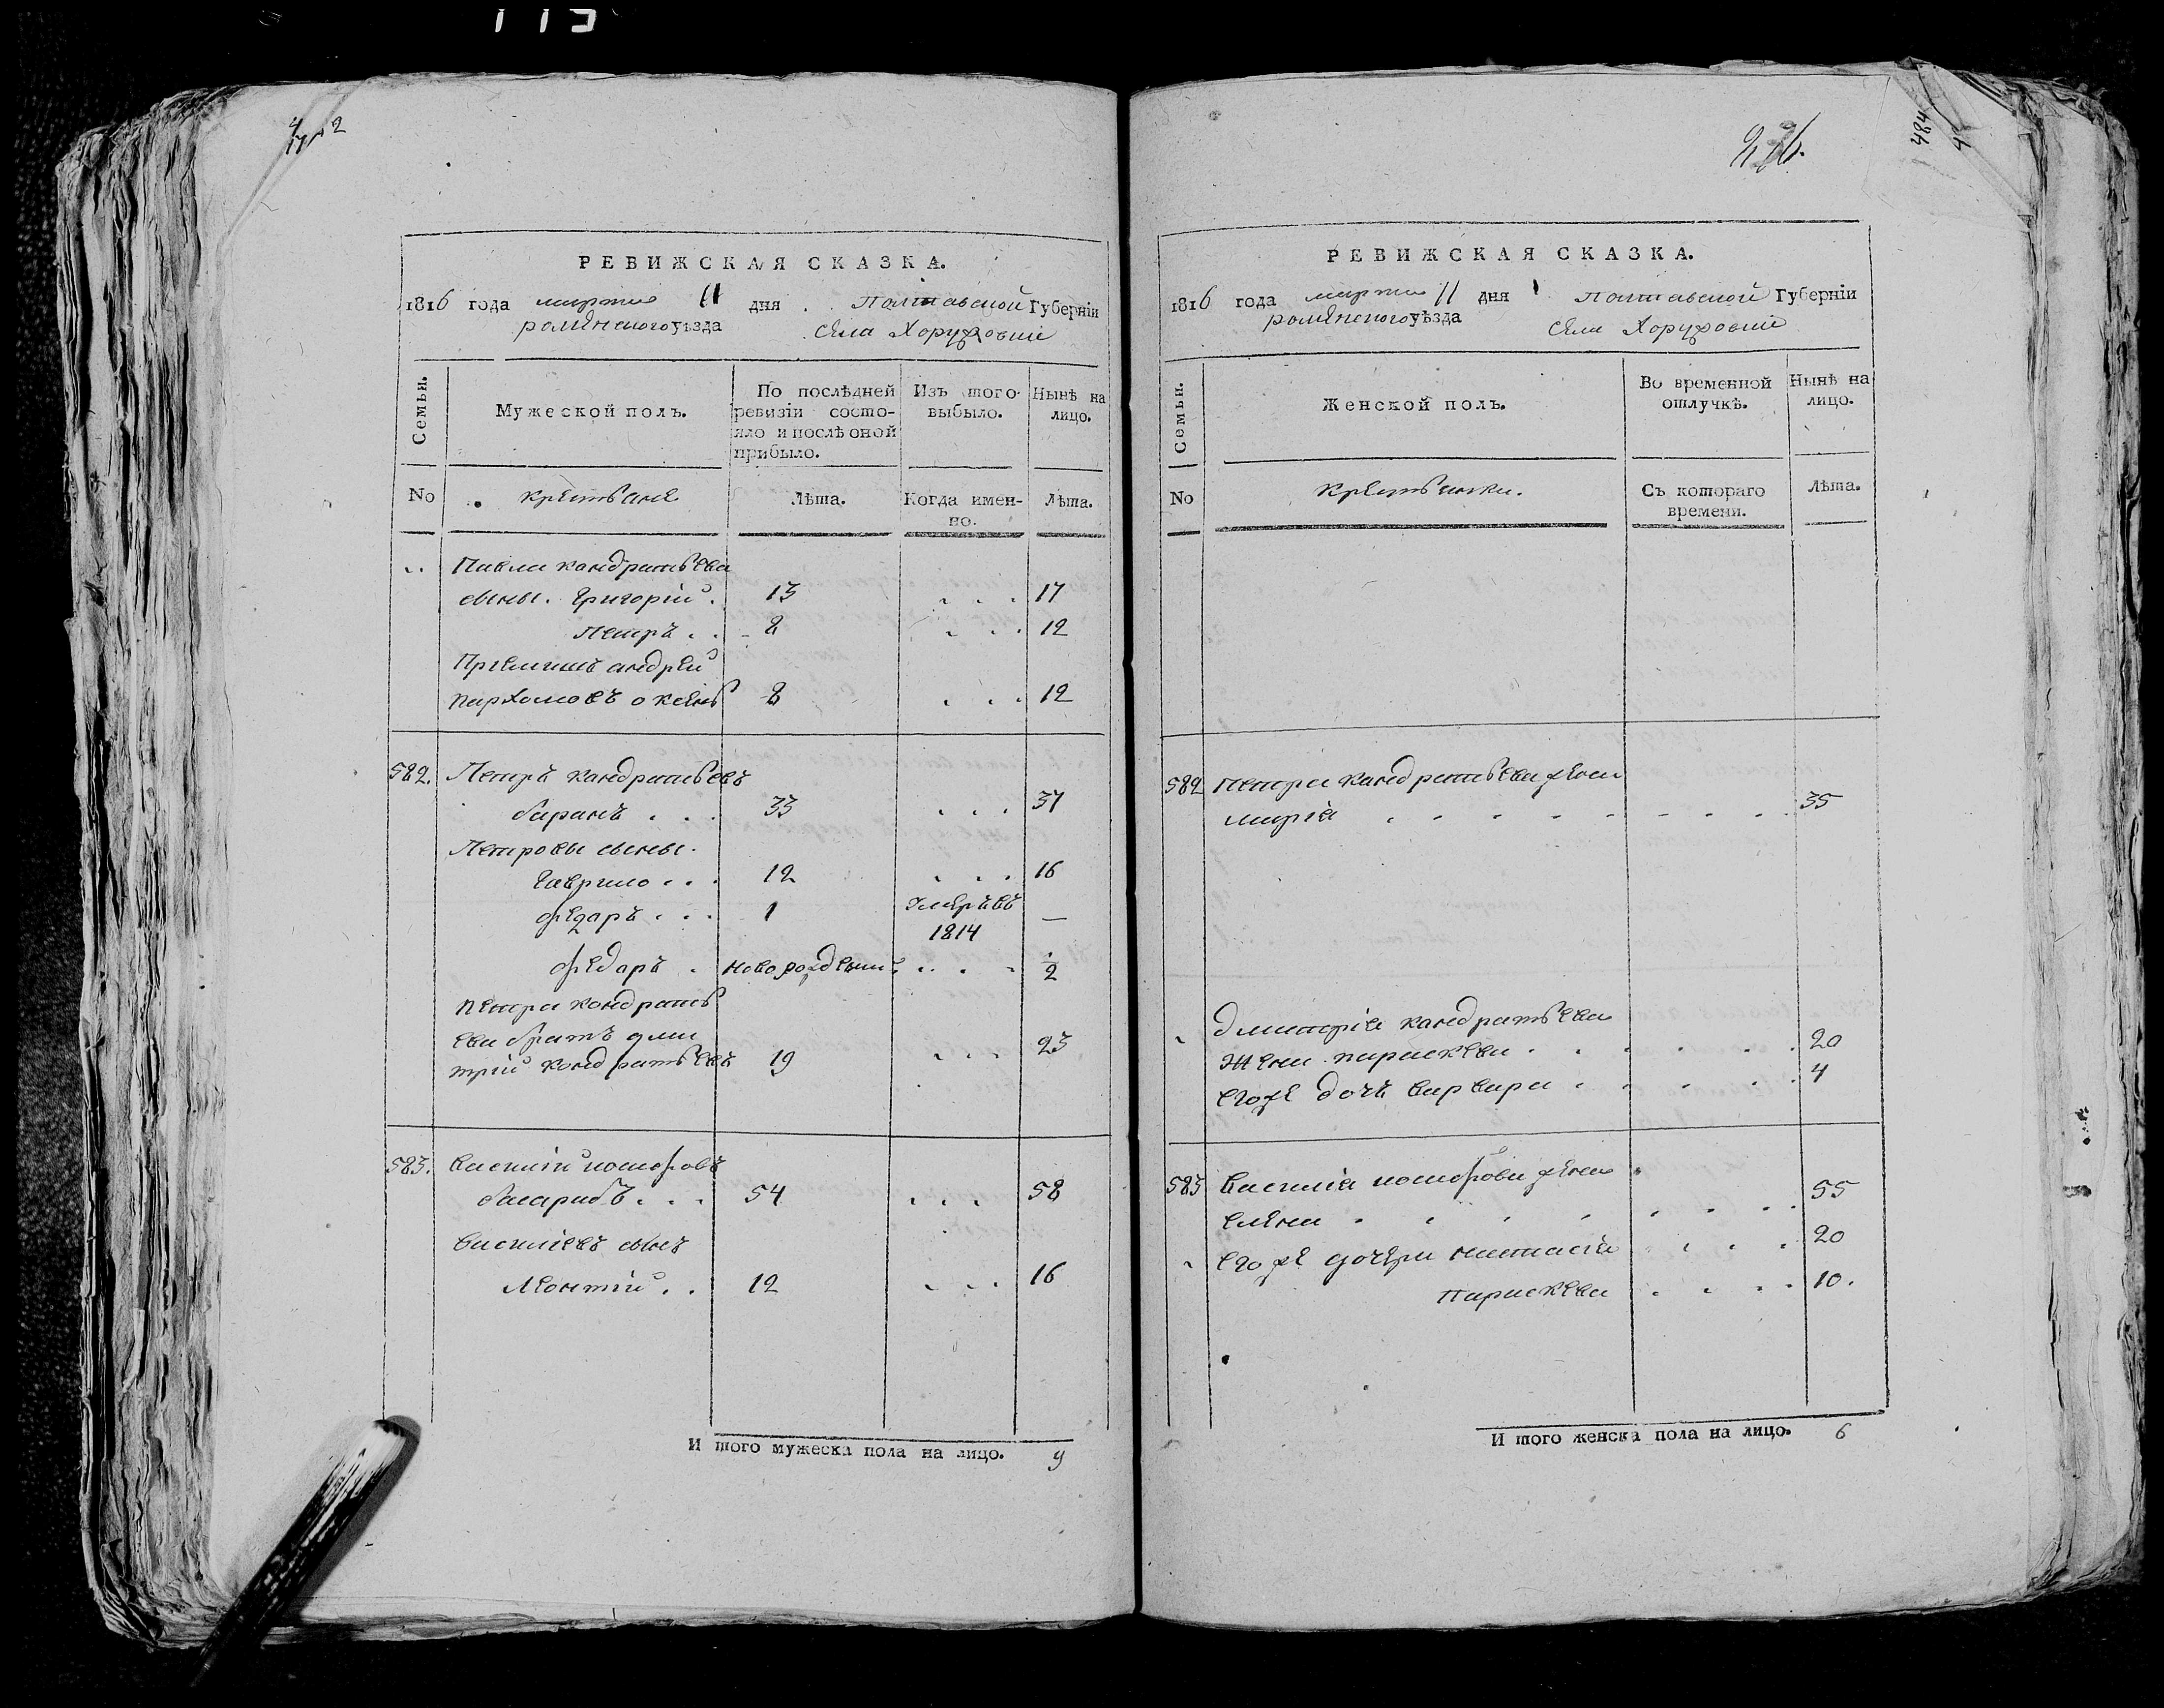 113
236.
484
РЕВИЖСКАЯ СКАЗКА.
1816 года марта 11 дня Полтавской Губерніи
роменского уѣзда села Хоружовки
Семьи.
Мужеской полъ.
По послѣдней ревизіи состояло и послѣ оной прибыло.
Изъ того выбыло.
Нынѣ на лицо.
No
крестьяне
Лѣта.
Когда именно.
Лѣта.
Павла кондратьева
сыны. Григорій. 13 . . . 17
Петръ . . 8 . . . 12
Пріемишъ андрей
пархомовъ 8 . . . 12
582. Петръ кондратьевъ
баранъ . . . 33 . . . 37
Петровы сыны.
Гаврило . . . 12 . . . 16
федаръ . . . 1 умеръ въ 1814 —
федаръ . новорожденный . . . . 1/2
петра кондрать
ева братъ дми
трій кондратьевъ 19 . . . 23
583. Василій никифоровъ
. . . 54 . . . 58
Василіевъ сынъ
Леонтій . . 12 . . . 16
И того мужеска пола на лицо. 9
РЕВИЖСКАЯ СКАЗКА.
1816 года марта 11 дня Полтавской Губерніи
роменского уѣзда села Хоружовки
Семьи.
Женской полъ.
Во временной отлучкѣ.
Нынѣ на лицо.
No
крестьянки.
Съ котораго времени.
Лѣта.
582 петра кондратьева жена
марія . . . . . . . . 35
дмитрія кондратьева
жена параскева . . . . . 20
егоже дочь варвара . . . . 4
583 Василія никифорова жена
елена . . . . . . . 55
егоже дочери настасія . . . 20
параскева . . . . 10.
И того женска пола на лицо. 6